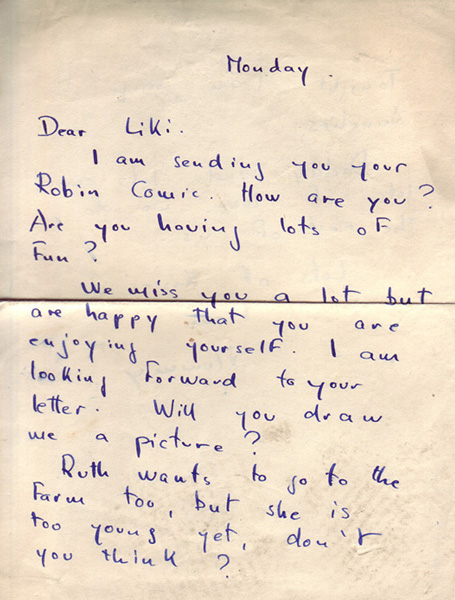 Monday.
Dear Liki.
I am sending you your
Robin Comic. How are you?
Are you having lots of
Fun?
We miss you a lot but
are happy that you are
enjoying yourself. I am
looking forward to your
letter. Will you draw
me a picture?
Ruth wants to go to the
Farm too, but she is
too young yet, don't
you think?